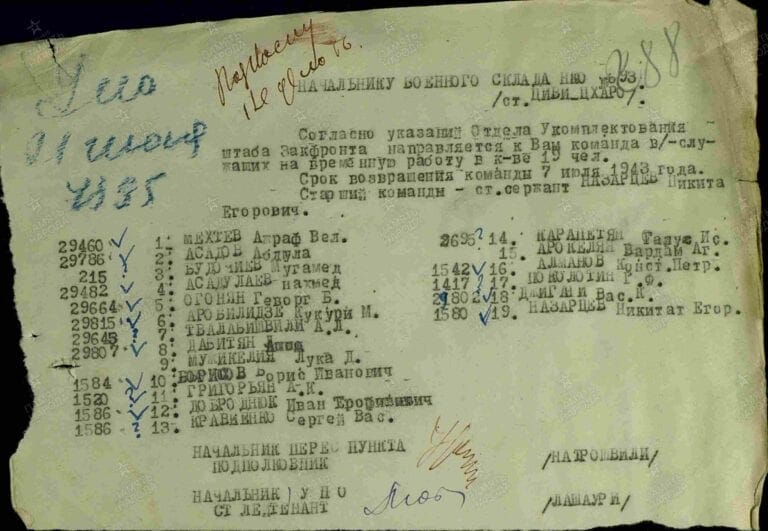 НАЧАЛЬНИКУ ВОЕННОГО СКЛАДА НКО №693.
88
/ст. ЦИВИ_ЦХАРО/
Согласно указаний Отдела Укомплектования
штаба Закфронта направляется к Вам команда в/-слу-
жащих на временную работу в к-ве 19 чел.
Срок возвращения команды 7 июля 1943 года.
Старший команды - ст.сержант НАЗАРЦЕВ Никита
Егорович.
Упо
01 июля
4935
29460 1. МЕХТЕВ Ашраф Вел.
29786 2. АСАДОВ Абдула
215 3. Мугамед
29482 4. АСАДУЛАЕВ
29664 5. ОГОНЯН Геворг Б.
29815 6. АРОБИЛИДЗЕ Кукури М.
29643 ? 7. ТВАЛАБИШВИЛИ А.Л.
29807 8. ДАВИТЯН
9. МУЖИКЕЛИЯ Лука Д.
1584 10. БОРИСОВ Борис Иванович
1520 11. ГРИГОРЬЯН А.К.
1586 12. ДОБРОДНЮК Иван
1586 ? 13. КРАВЧЕНКО Сергей Вас.
2695 ? 14. КАРАПЕТЯН Ис.
15. АРОКЕЛЯН Вардан Аг.
1542 16. АЛМАНОВ Конст.Петр.
1417 ? 17. ПОКОЛОТИН Г.Ф.
29802 18. ДЖИГАНИ Вас.К.
1580 19. НАЗАРЦЕВ Никитат Егор.
НАЧАЛЬНИК ПЕРЕС ПУНКТА
ПОДПОЛКОВНИК /НАТРОШВИЛИ/
НАЧАЛЬНИК У П О
СТ ЛЕЙТЕНАНТ /ЛАШАУРИ/